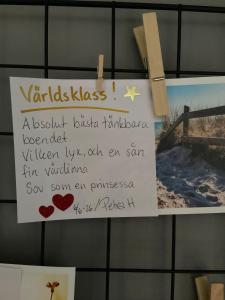 Världsklass!
Absolut bästa tänkbara
boendet
Vilken lyx, och en sån
fin värdinna
Sov som en prinsessa
4/6-26/Petra H